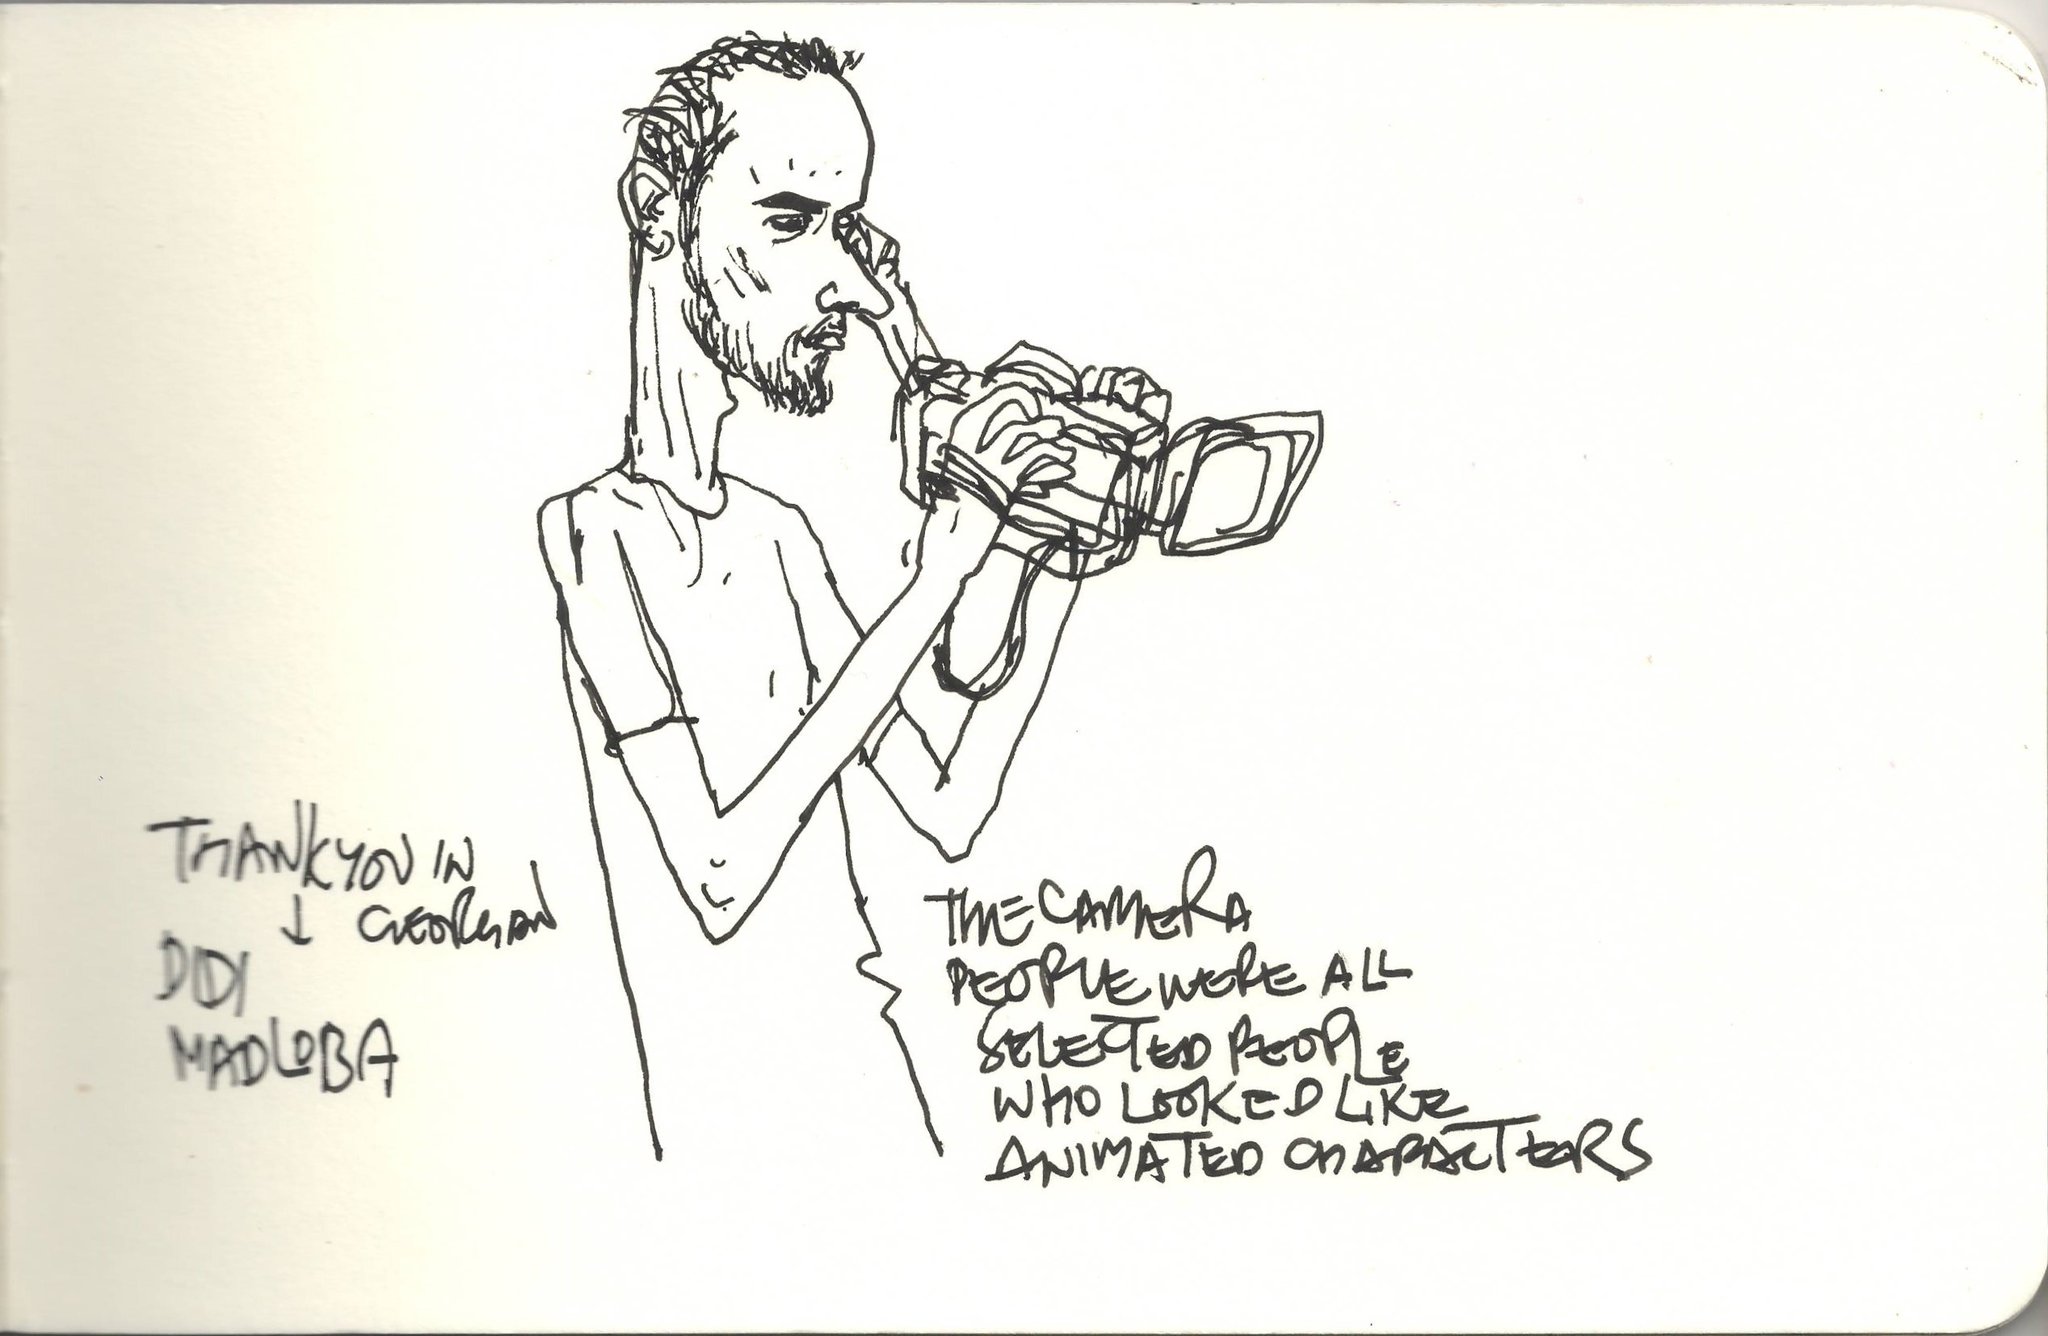 THANKYOU IN
↓ GEORGIAN
DIDI
MADLOBA
THE CAMERA
PEOPLE WERE ALL
SELECTED PEOPLE
WHO LOOKED LIKE
ANIMATED CHARACTERS